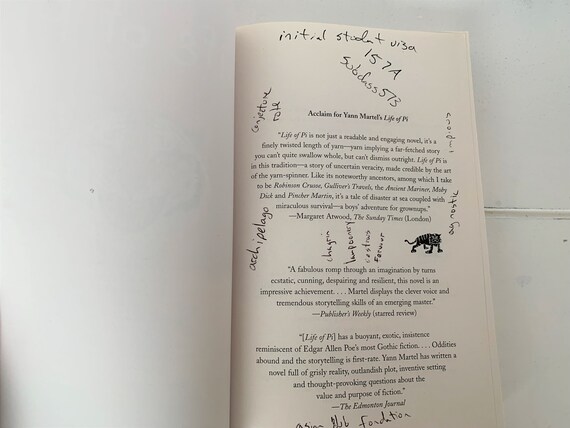 initial student visa
157A
Subclass 573
conjecture
rote
impious
Acclaim for Yann Martel's Life of Pi
"Life of Pi is not just a readable and engaging novel, it's a
finely twisted length of yarn—yarn implying a far-fetched story
you can't quite swallow whole, but can't dismiss outright. Life of Pi is
in this tradition—a story of uncertain veracity, made credible by the art
of the yarn-spinner. Like its noteworthy ancestors, among which I take
to be Robinson Crusoe, Gulliver's Travels, the Ancient Mariner, Moby
Dick and Pincher Martin, it's a tale of disaster at sea coupled with
miraculous survival—a boys' adventure for grownups."
—Margaret Atwood, The Sunday Times (London)
archipelago
chagrin
fervour
agnostic
"A fabulous romp through an imagination by turns
ecstatic, cunning, despairing and resilient, this novel is an
impressive achievement. . . . Martel displays the clever voice and
tremendous storytelling skills of an emerging master."
—Publisher's Weekly (starred review)
"[Life of Pi] has a buoyant, exotic, insistence
reminiscent of Edgar Allen Poe's most Gothic fiction. . . . Oddities
abound and the storytelling is first-rate. Yann Martel has written a
novel full of grisly reality, outlandish plot, inventive setting
and thought-provoking questions about the
value and purpose of fiction."
—The Edmonton Journal